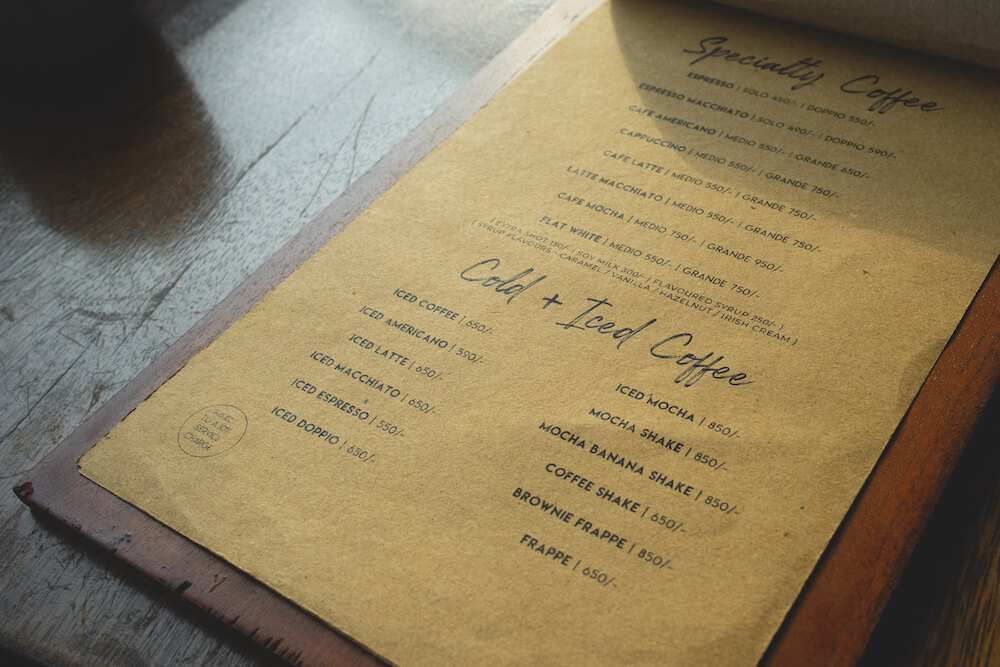 Specialty Coffee
ESPRESSO | SOLO 450/- | DOPPIO 550/-
ESPRESSO MACCHIATO | SOLO 490/- | DOPPIO 590/-
CAFE AMERICANO | MEDIO 550/- | GRANDE 650/-
CAPPUCCINO | MEDIO 550/- | GRANDE 750/-
CAFE LATTE | MEDIO 550/- | GRANDE 750/-
LATTE MACCHIATO | MEDIO 550/- | GRANDE 750/-
CAFE MOCHA | MEDIO 750/- | GRANDE 950/-
FLAT WHITE | MEDIO 550/- | GRANDE 750/-
( EXTRA SHOT 150/- | SOY MILK 300/- | FLAVOURED SYRUP 250/- )
( SYRUP FLAVOURS - CARAMEL / VANILLA / HAZELNUT / IRISH CREAM )
Cold + Iced Coffee
ICED COFFEE | 650/-
ICED AMERICANO | 590/-
ICED LATTE | 650/-
ICED MACCHIATO | 650/-
ICED ESPRESSO | 550/-
ICED DOPPIO | 650/-
ICED MOCHA | 850/-
MOCHA SHAKE | 850/-
MOCHA BANANA SHAKE | 850/-
COFFEE SHAKE | 650/-
BROWNIE FRAPPE | 850/-
FRAPPE | 650/-
TO A 10%
SERVICE
CHARGE